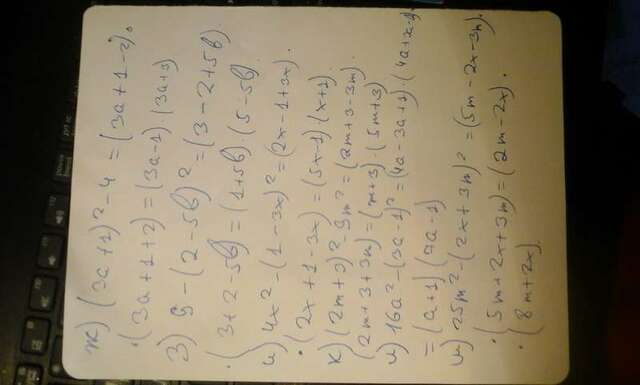 ж) (3a+1)²-4 = (3a+1-2)·
·(3a+1+2) = (3a-1)·(3a+3)
З) 9-(2-5b)² = (3-2+5b)·
·(3+2-5b) = (1+5b)·(5-5b)
и) 4x²-(1-3x)² = (2x-1+3x)·
·(2x+1-3x) = (5x-1)(x+1)
к) (2m+3)²-9m² = (2m+3-3m)·
(2m+3+3m) = (m+3)·(5m+3)
л) 16a²-(3a-1)² = (4a-3a+1)·(4a+x-1)
= (a+1)(7a-1)
м) 25m²-(2x+3m)² = (5m-2x-3m)·
·(5m+2x+3m) = (2m-2x)·
·(8m+2x)